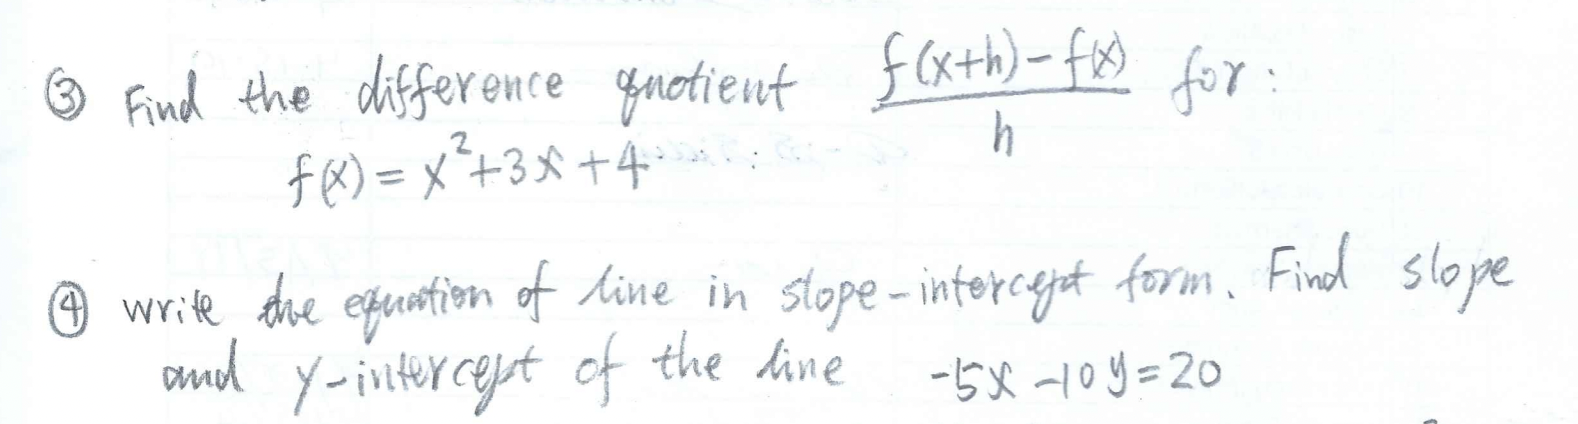 ③ Find the difference quotient \frac{f(x+h)-f(x)}{h} for:
f(x) = x²+3x+4
④ write the equation of line in slope-intercept form. Find slope
and y-intercept of the line -5x -10y=20